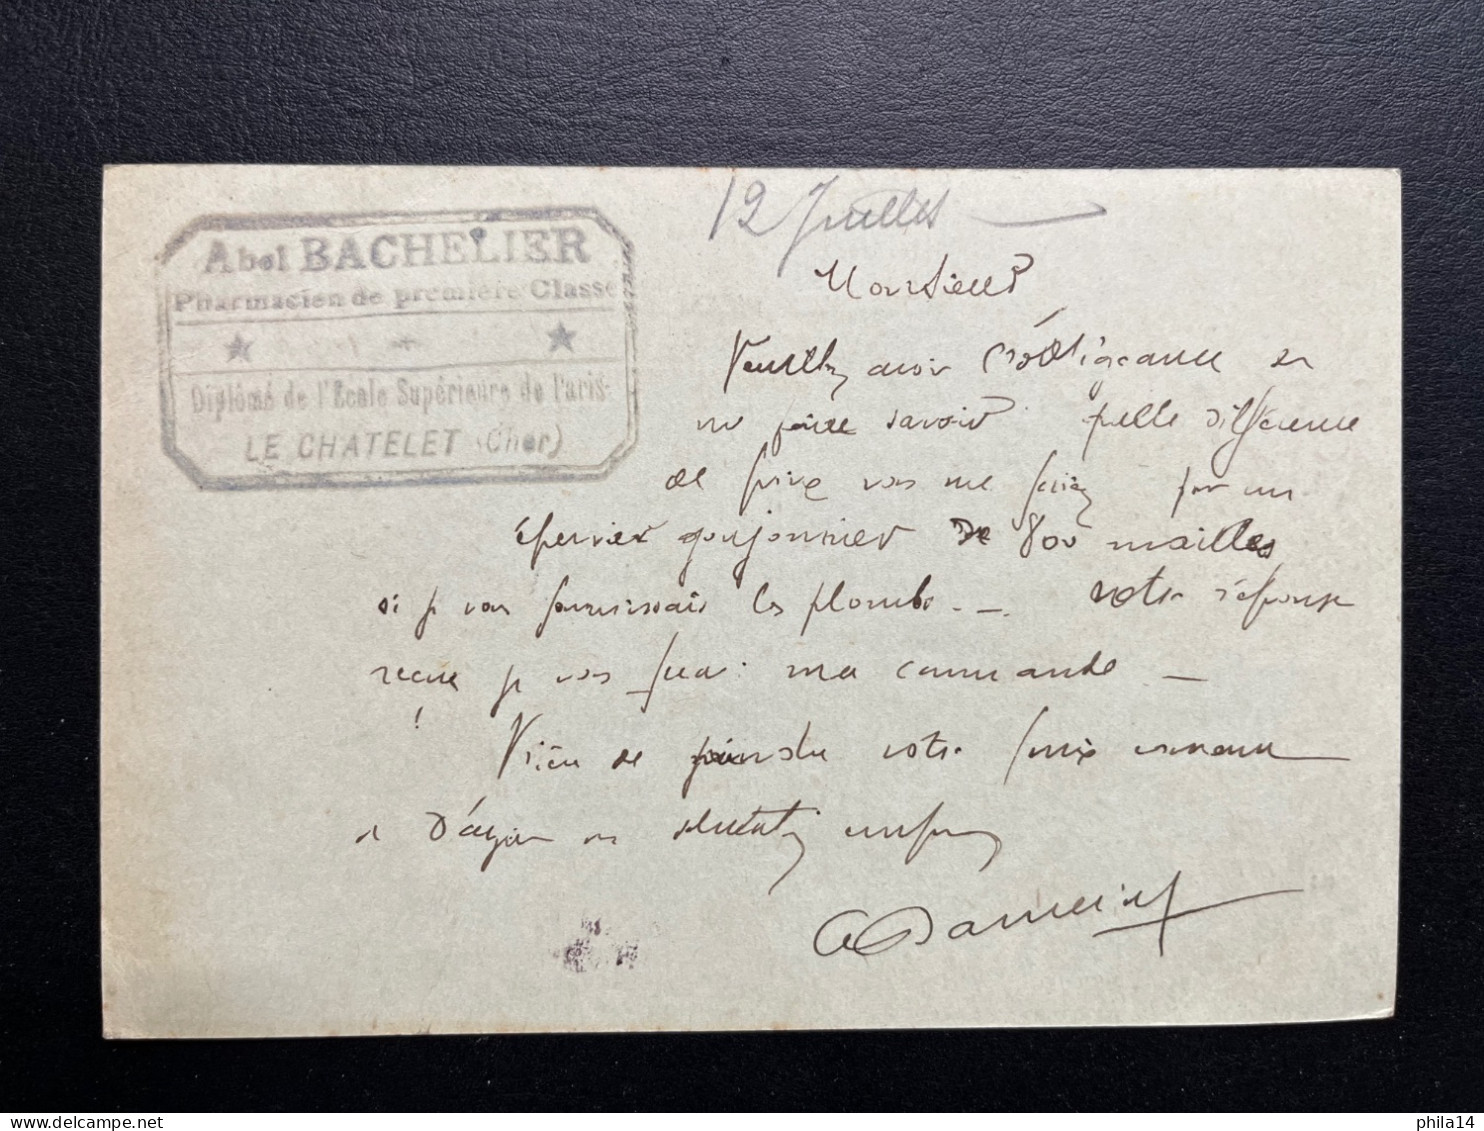 Abel BACHELIER
Pharmacien de première Classe
Diplômé de l'Ecole Supérieure de Paris
LE CHATELET (Cher)
12 Juillet
Monsieur
Veuillez avoir l'obligeance de
me faire savoir quelle différence
de prix vous me feriez pour un
épervier goujonnier de 800 mailles
si je vous fournissais les plombs. _ . Votre réponse
reçue je vous ferai ma commande _
Prière de joindre votre prix courant
et d'agréer mes salutations empressées
delcampe.net
phila14